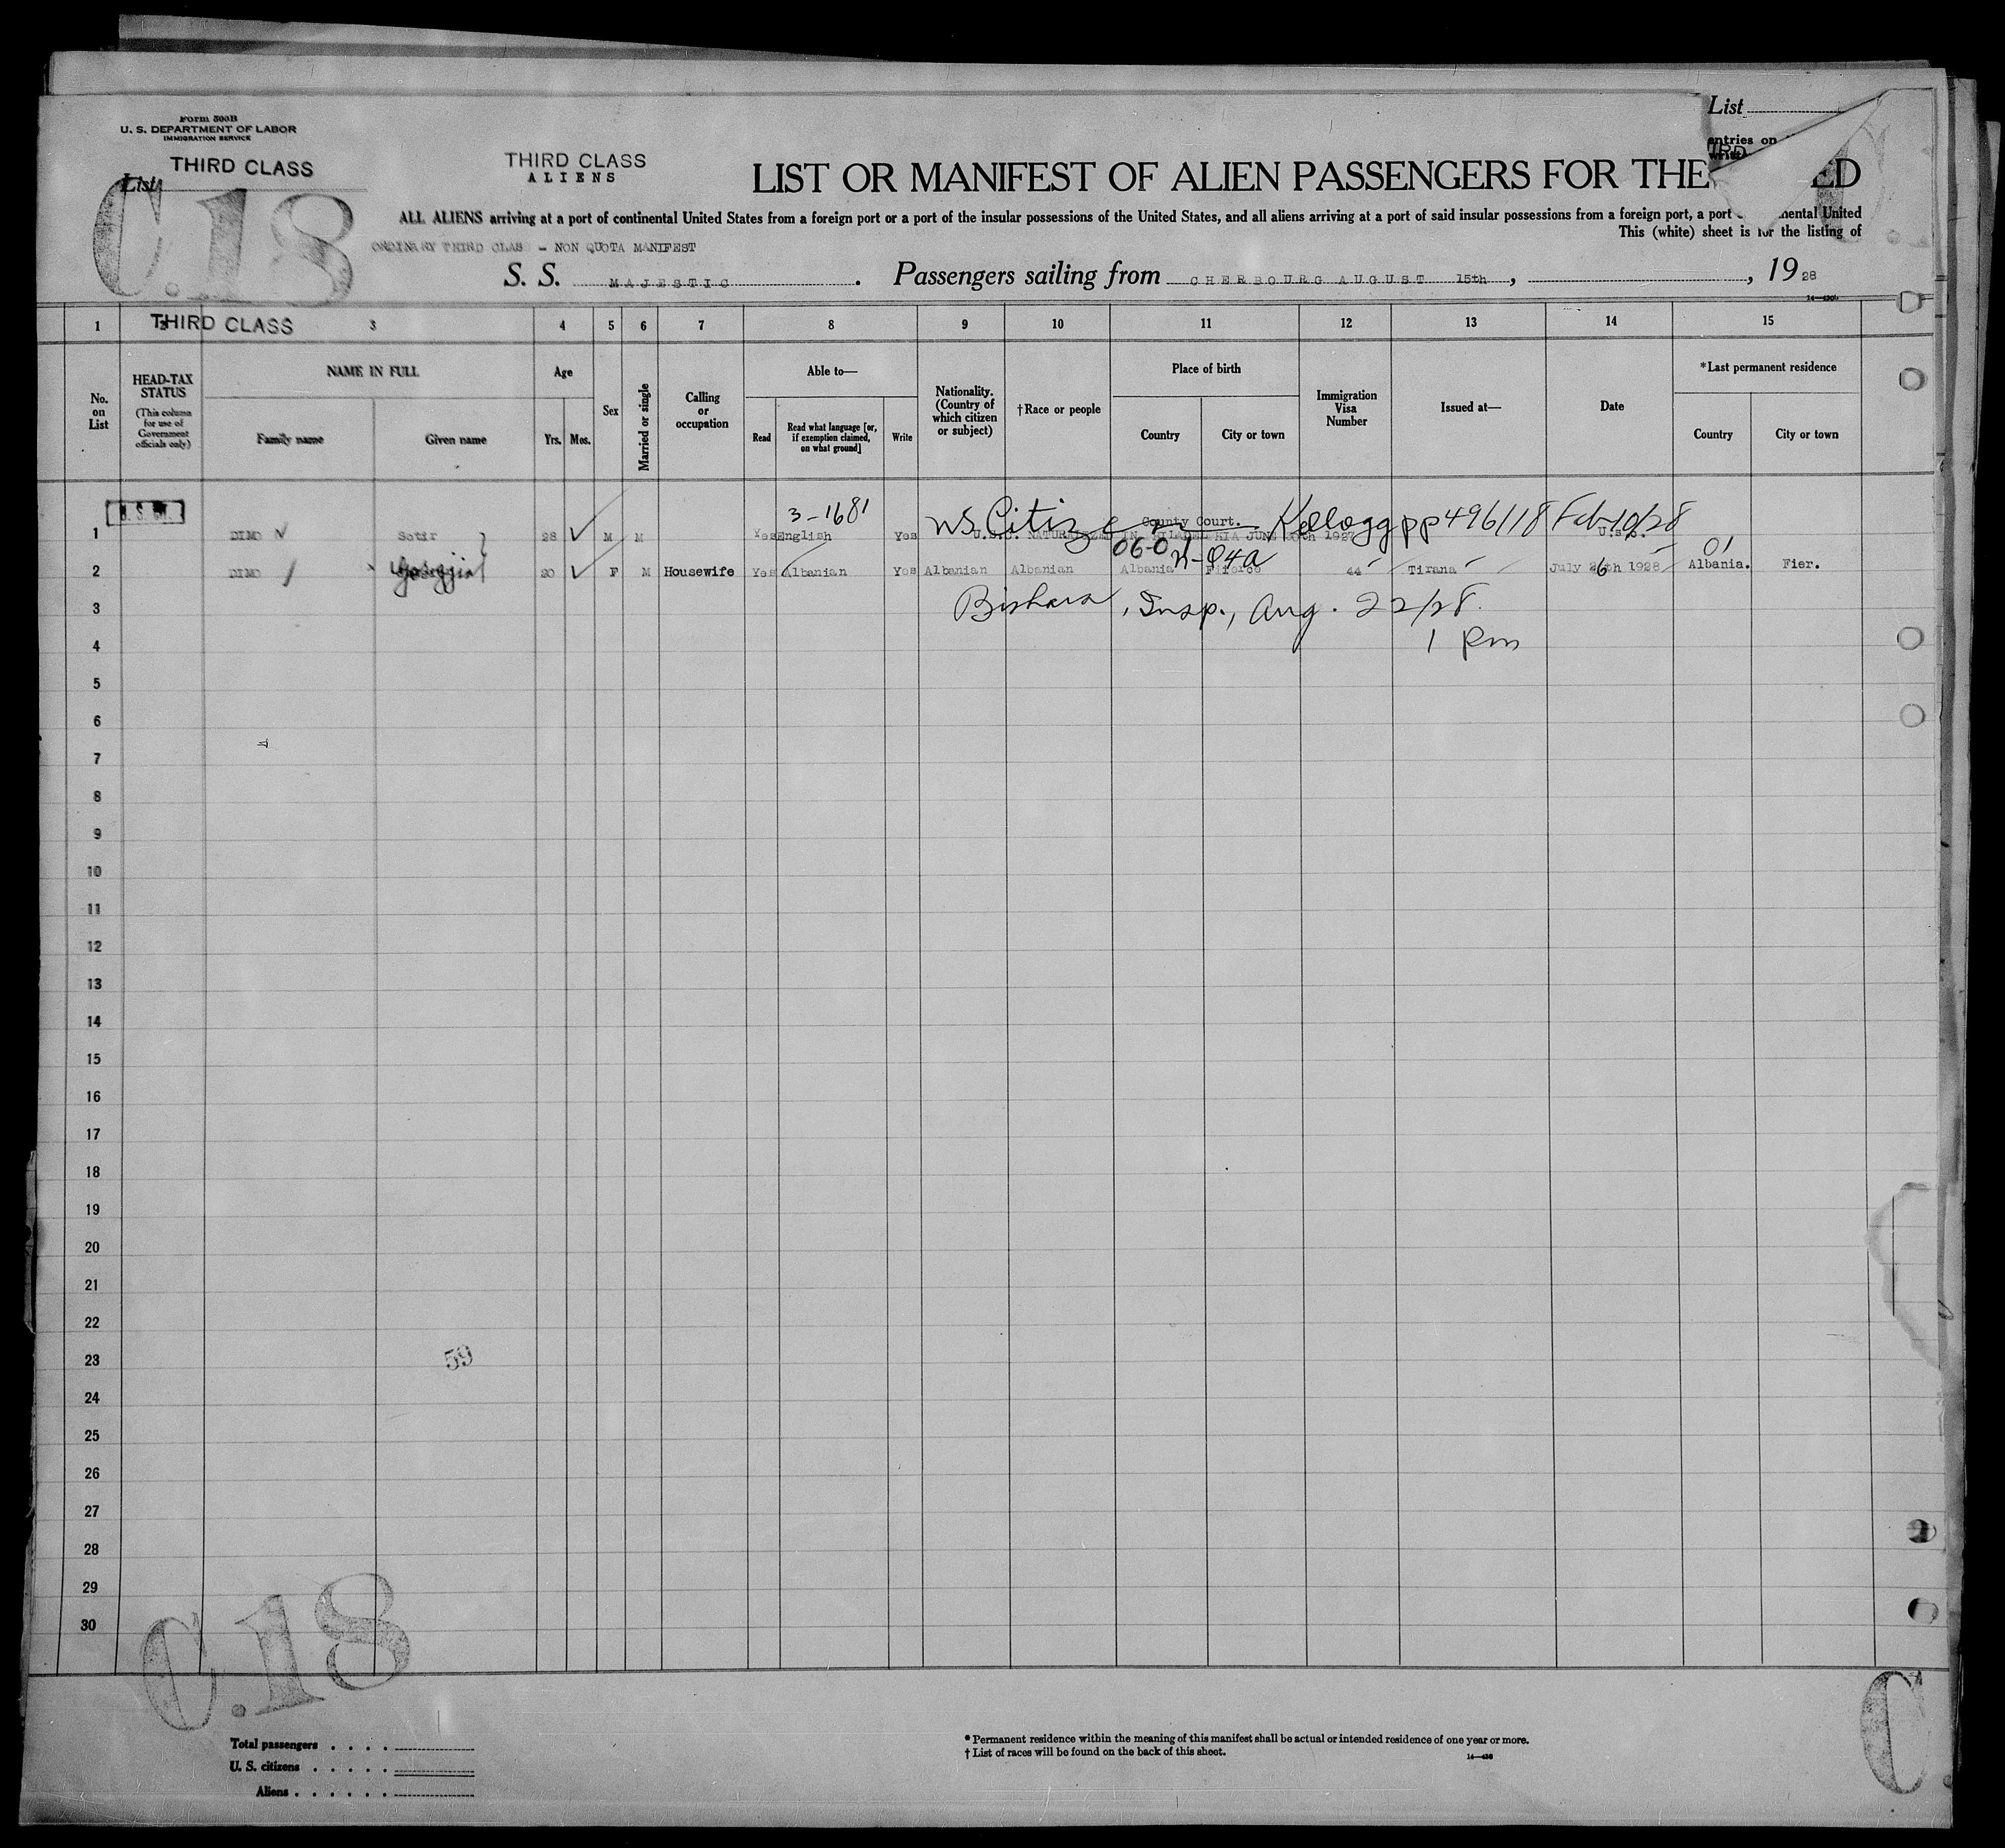 Form 500B
U. S. DEPARTMENT OF LABOR
IMMIGRATION SERVICE
THIRD CLASS
List
C.18
THIRD CLASS
ALIENS
List
entries on
LIST OR MANIFEST OF ALIEN PASSENGERS FOR THE ED
ALL ALIENS arriving at a port of continental United States from a foreign port or a port of the insular possessions of the United States, and all aliens arriving at a port of said insular possessions from a foreign port, a port mental United
This (white) sheet is for the listing of
ORDINARY THIRD CLAS - NON QUOTA MANIFEST
S. S. MAJESTIC. Passengers sailing from CHERBOURG AUGUST 15th, , 1928
14—430b
1 2 3 4 5 6 7 8 9 10 11 12 13 14 15
THIRD CLASS
No. on List
HEAD-TAX STATUS (This column for use of Government officials only)
NAME IN FULL
Family name
Given name
Age
Yrs.
Mos.
Sex
Married or single
Calling or occupation
Able to—
Read
Read what language [or, if exemption claimed, on what ground]
Write
Nationality. (Country of which citizen or subject)
†Race or people
Place of birth
Country
City or town
Immigration Visa Number
Issued at—
Date
*Last permanent residence
Country
City or town
3-1681
US Citizen Kellogg pp 496118 Feb 10/28
County Court.
1 DIMO Sotir 28 M M Yes English Yes U.S.C. NATURALIZED IN PHILADELPHIA JUNE 1927 U.S.
01
2 DIMO 20 F M Housewife Yes Albanian Yes Albanian Albanian Albania 44 Tirana July 26th 1928 Albania. Fier.
3 Bishara, Insp., Aug. 22/28.
4 1 Pm
5
6
7
8
9
10
11
12
13
14
15
16
17
18
19
20
21
22
23 59
24
25
26
27
28
29
30
C.18
C
Total passengers . . . .
U. S. citizens . . . . .
Aliens . . . . . .
* Permanent residence within the meaning of this manifest shall be actual or intended residence of one year or more.
† List of races will be found on the back of this sheet.